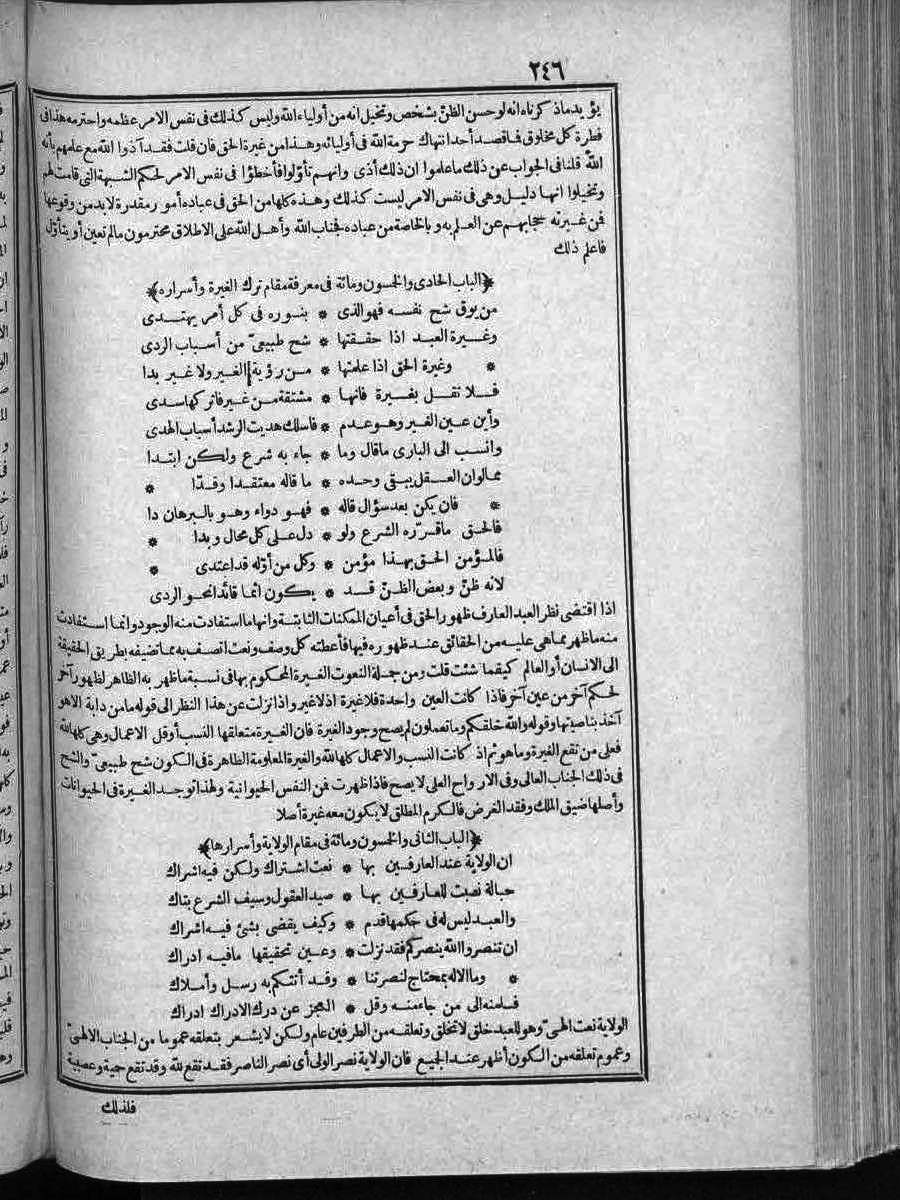 ٢٤٦
يؤيد ماذكرناه انه لو حسن الظن بشخص وتخيل انه من أولياء الله وليس كذلك فى نفس الامر عظمه واحترمه هذا فى
فطرة كل مخلوق فما قصد أحد انتهاك حرمة الله فى أوليائه وهذا من غيرة الحق فان قلت فقد آذوا الله مع علمهم بأنه
الله قلنا فى الجواب عن ذلك ما علموا ان ذلك أذى وانهم تأولوا فأخطؤا فى نفس الامر لحكم الشبهة التى قامت لهم
وتخيلوا انها دليل وهى فى نفس الامر ليست كذلك وهذه كلها من الحق فى عباده أمور مقدرة لابد من وقوعها
فمن غيرته حجابهم عن العلم به وبالخاصة من عباده فجناب الله وأهل الله على الاطلاق محترمون مالم تعين أو يتأول
فاعلم ذلك
﴿الباب الحادى والخمسون ومائة فى معرفة مقام ترك الغيرة وأسراره﴾
من يوق شح نفسه فهو الذى * بنوره فى كل أمر يهتدى
وغيرة العبد اذا حققتها * شح طبيعىّ من أسباب الردى
* وغيرة الحق اذا علمتها * من رؤية الغير ولا غير بدا
فلا تقل بغيرة فانها * مشتقة من غير فاتركها سدى
وأين عين الغير وهو عدم * فاسلك هديت الرشد أسباب الهدى
وانسب الى البارى ما قال وما * جاء به شرع ولكن ابتدا
مما لو ان العقل يبقى وحده * ما قاله معتقدا وفدّا *
* فان يكن بعد سؤال قاله * فهو دواء وهو بالبرهان دا
فالحق ما قرّره الشرع ولو * دل على كل محال وبدا *
فالمؤمن الحق بهذا مؤمن * وكل من أوّله قد اعتدى *
لانه ظنّ وبعض الظنّ قد * يكون اثما قائدا نحو الردى
اذا اقتضى نظر العبد العارف ظهور الحق فى أعيان الممكنات الثابتة وانها ما استفادت منه الوجود وانما استفادت
منه ما ظهر مما هى عليه من الحقائق عند ظهوره فيها فأعطته كل وصف ونعت اتصف به مما تضيفه بطريق الحقيقة
الى الانسان أو العالم كيفما شئت قلت ومن جملة النعوت الغيرة المحكوم بها فى نسبة ما ظهر به الظاهر لظهور آخر
لحكم آخر من عين آخر فاذا كانت العين واحدة فلا غيرة اذ لا غير واذا نزلت عن هذا النظر الى قوله ما من دابة الا هو
آخذ بناصيتها وقوله والله خلقكم وما تعملون لم يصح وجود الغيرة فان الغيرة متعلقها النسب أو قل الاعمال وهى كلها لله
فعلى من تقع الغيرة وما هو ثم اذ كانت النسب والاعمال كلها لله والغيرة المعلومة الظاهرة فى الكون شح طبيعىّ والشح
فى ذلك الجناب العالى وفى الارواح العلى لا يصح فاذا ظهرت فمن النفس الحيوانية ولهذا توجد الغيرة فى الحيوانات
وأصلها ضيق الملك وفقد الغرض فالكرم المطلق لا يكون معه غيرة أصلا
﴿الباب الثانى والخمسون ومائة فى مقام الولاية وأسرارها﴾
ان الولاية عند العارفين بها * نعت اشتراك ولكن فيه اشراك
حبالة نصبت للعارفين بها * صيد العقول وسيف الشرع بتاك
والعبد ليس له فى حكمها قدم * وكيف يقضى بشئ فيه اشراك
ان تنصروا الله ينصركم فقد نزلت * وعين تحقيقها مافيه ادراك
* وما الاله بمحتاج لنصرتنا * وقد أتتكم به رسل وأملاك
فلمنه الى من جاء منه وقل * العجز عن درك الادراك ادراك
الولاية نعت الهىّ وهو للعبد خلق لا تخلق وتعلقه من الطرفين عام ولكن لا يشعر بتعلقه عموما من الجناب الالهىّ
وعموم تعلقه من الكون أظهر عند الجميع فان الولاية نصر الولى أى نصر الناصر فقد تقع لله وقد تقع حمية وعصبية
فلذلك